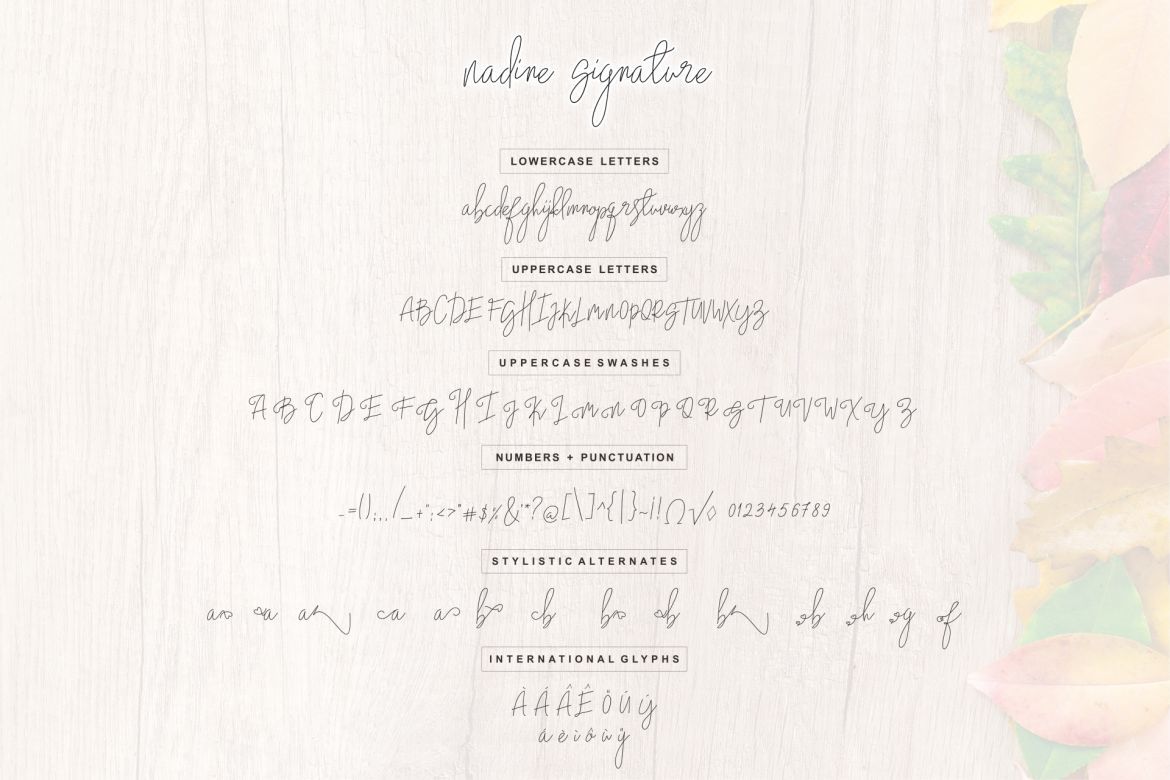 nadine signature
LOWERCASE LETTERS
abcdefghijklmnopqrstuvwxyz
UPPERCASE LETTERS
ABCDEFGHIJKLMNOPQRSTUVWXYZ
UPPERCASE SWASHES
A B C D E F G H I J K L M N O P Q R S T U V W X Y Z
NUMBERS + PUNCTUATION
-=();,./_+":<>"#$%&'*?@[\]^{|}~¡!Ω√◊ 0123456789
STYLISTIC ALTERNATES
a a a a a b b b b b b h g f
INTERNATIONAL GLYPHS
À Á Â Ê Ö Ú Ý
á è ì ô ù ÿ